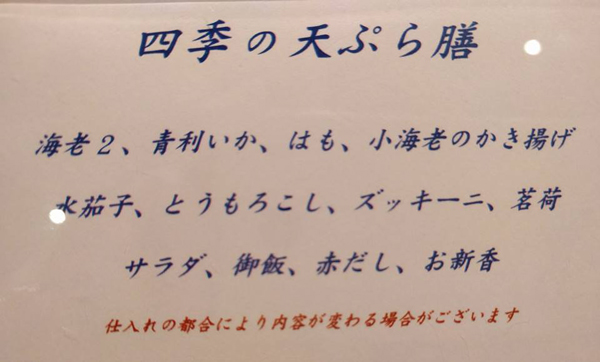 四季の天ぷら膳
海老2、青利いか、はも、小海老のかき揚げ
水茄子、とうもろこし、ズッキーニ、茗荷
サラダ、御飯、赤だし、お新香
仕入れの都合により内容が変わる場合がございます